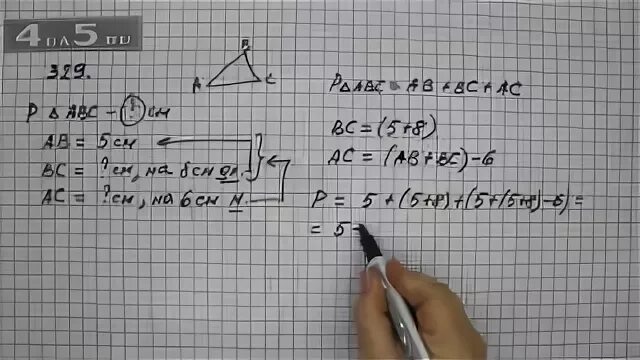 4 ПЛ 5 ПП
329.
A B C
P △ ABC – ? см
AB = 5 см
BC = ? см, на 8 см дл.
AC = ? см, на 6 см м.
P△ABC = AB + BC + AC
BC = (5+8)
AC = (AB+BC) – 6
P = 5 + (5+8) + (5+(5+8) – 6) =
= 5